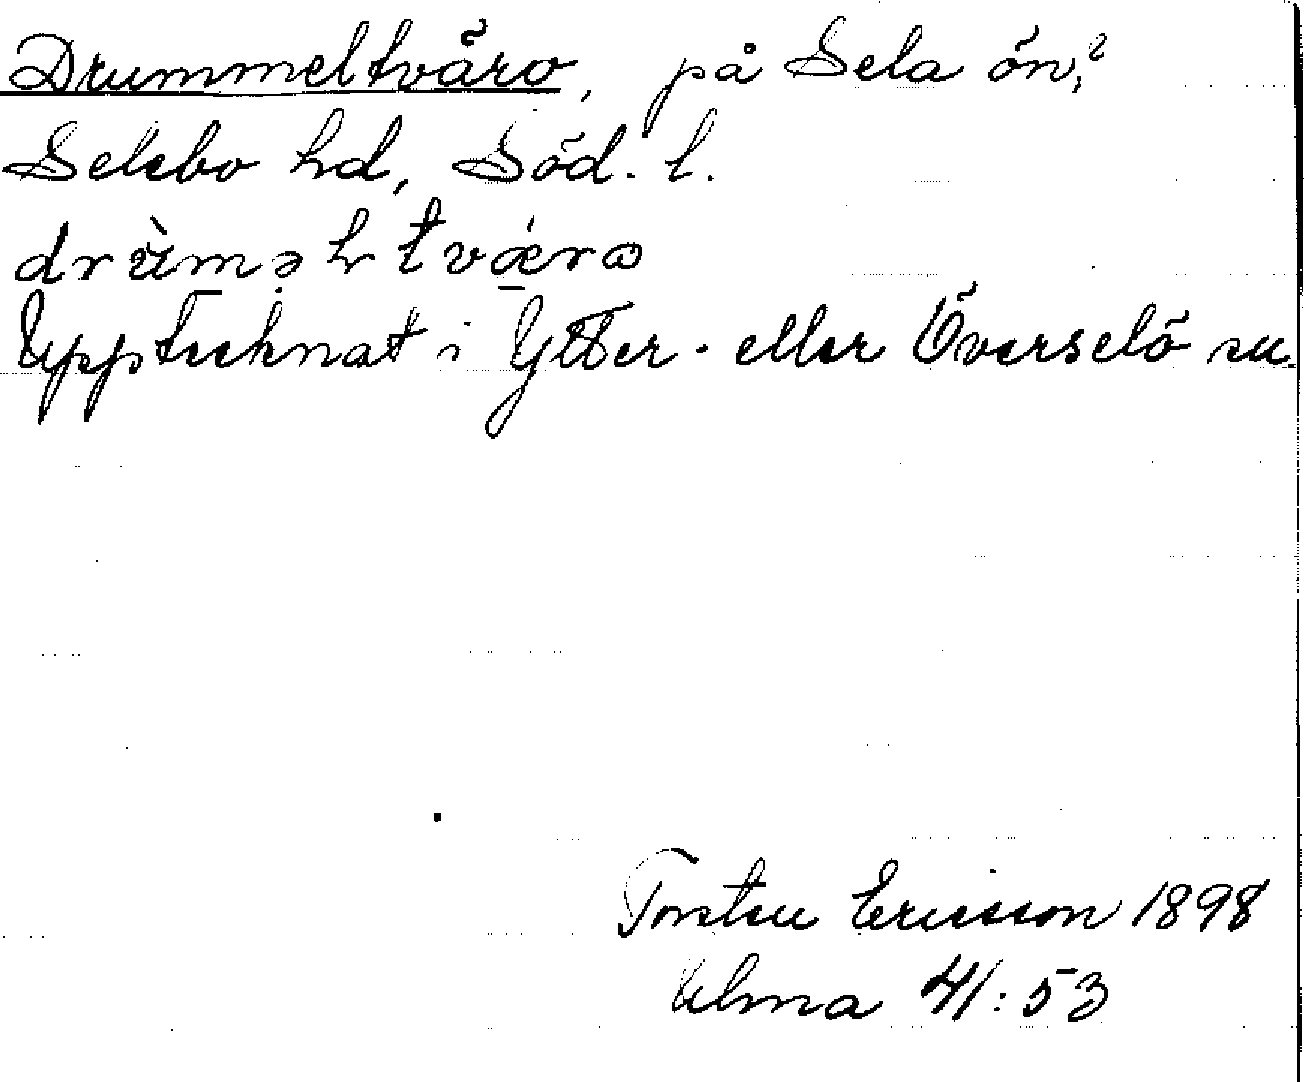 Drummeltväro, på Sela ön,?
Selebo hd, Söd. l.
Upptecknat i Ytter- eller Överselö sn.
Torsten Ericsson 1898
Ulma 41:53